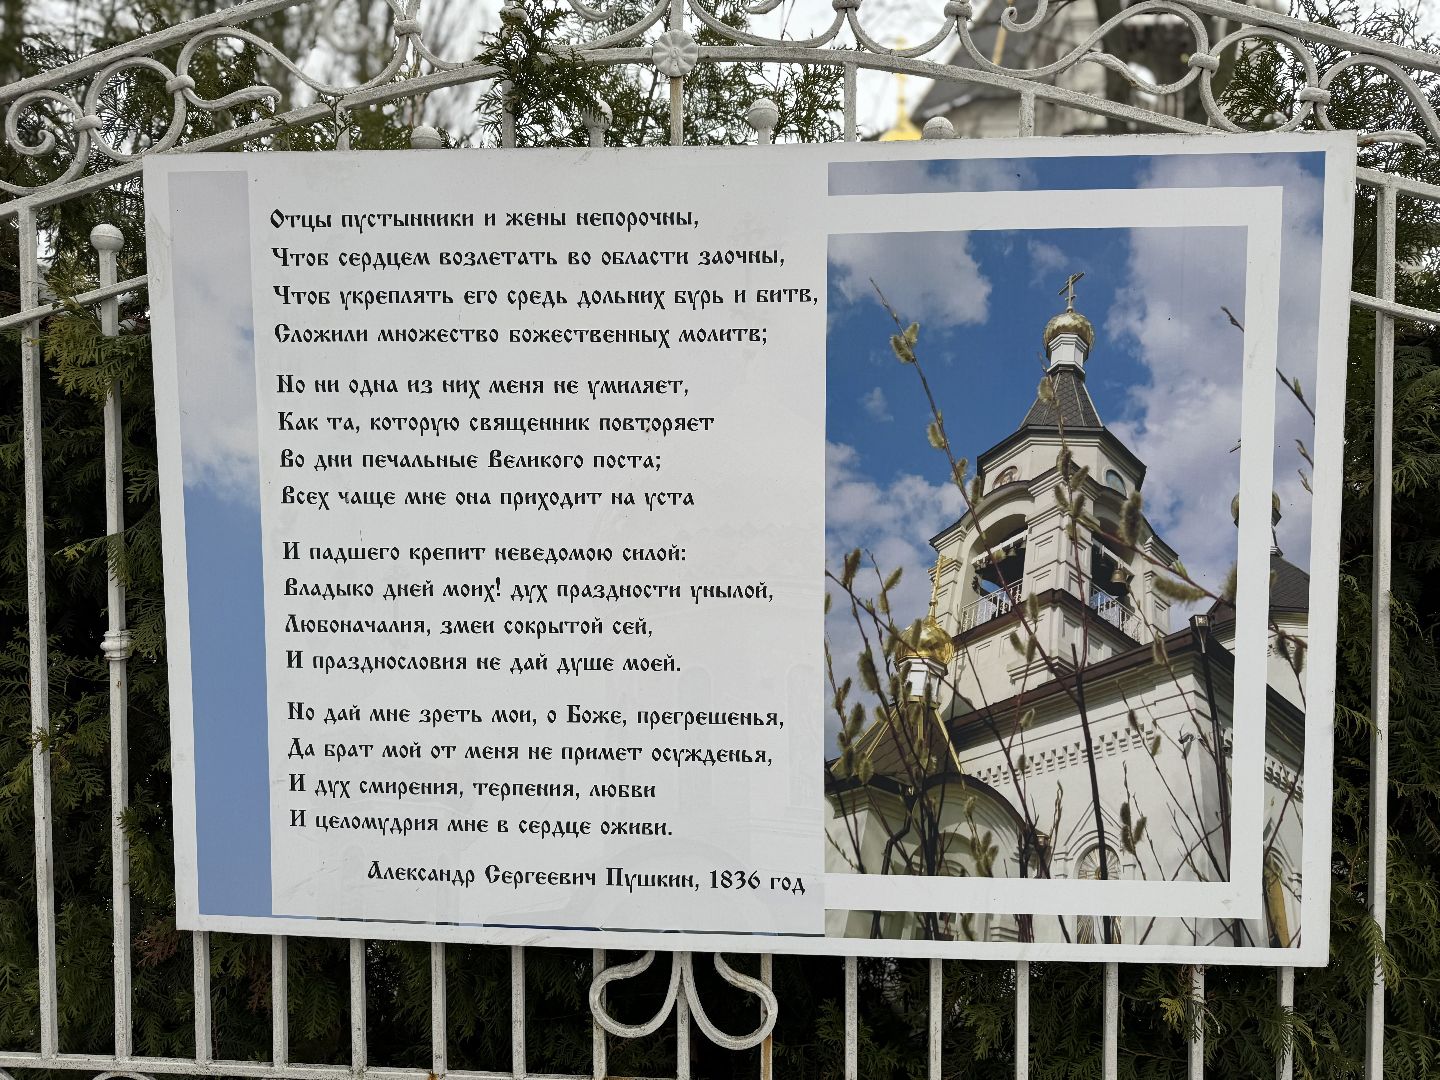 Отцы пустынники и жены непорочны,
Чтоб сердцем возлетать во области заочны,
Чтоб укреплять его средь дольних бурь и битв,
Сложили множество божественных молитв;
Но ни одна из них меня не умиляет,
Как та, которую священник повторяет
Во дни печальные Великого поста;
Всех чаще мне она приходит на уста
И падшего крепит неведомою силой:
Владыко дней моих! дух праздности унылой,
Любоначалия, змеи сокрытой сей,
И празднословия не дай душе моей.
Но дай мне зреть мои, о Боже, прегрешенья,
Да брат мой от меня не примет осужденья,
И дух смирения, терпения, любви
И целомудрия мне в сердце оживи.
Александр Сергеевич Пушкин, 1836 год